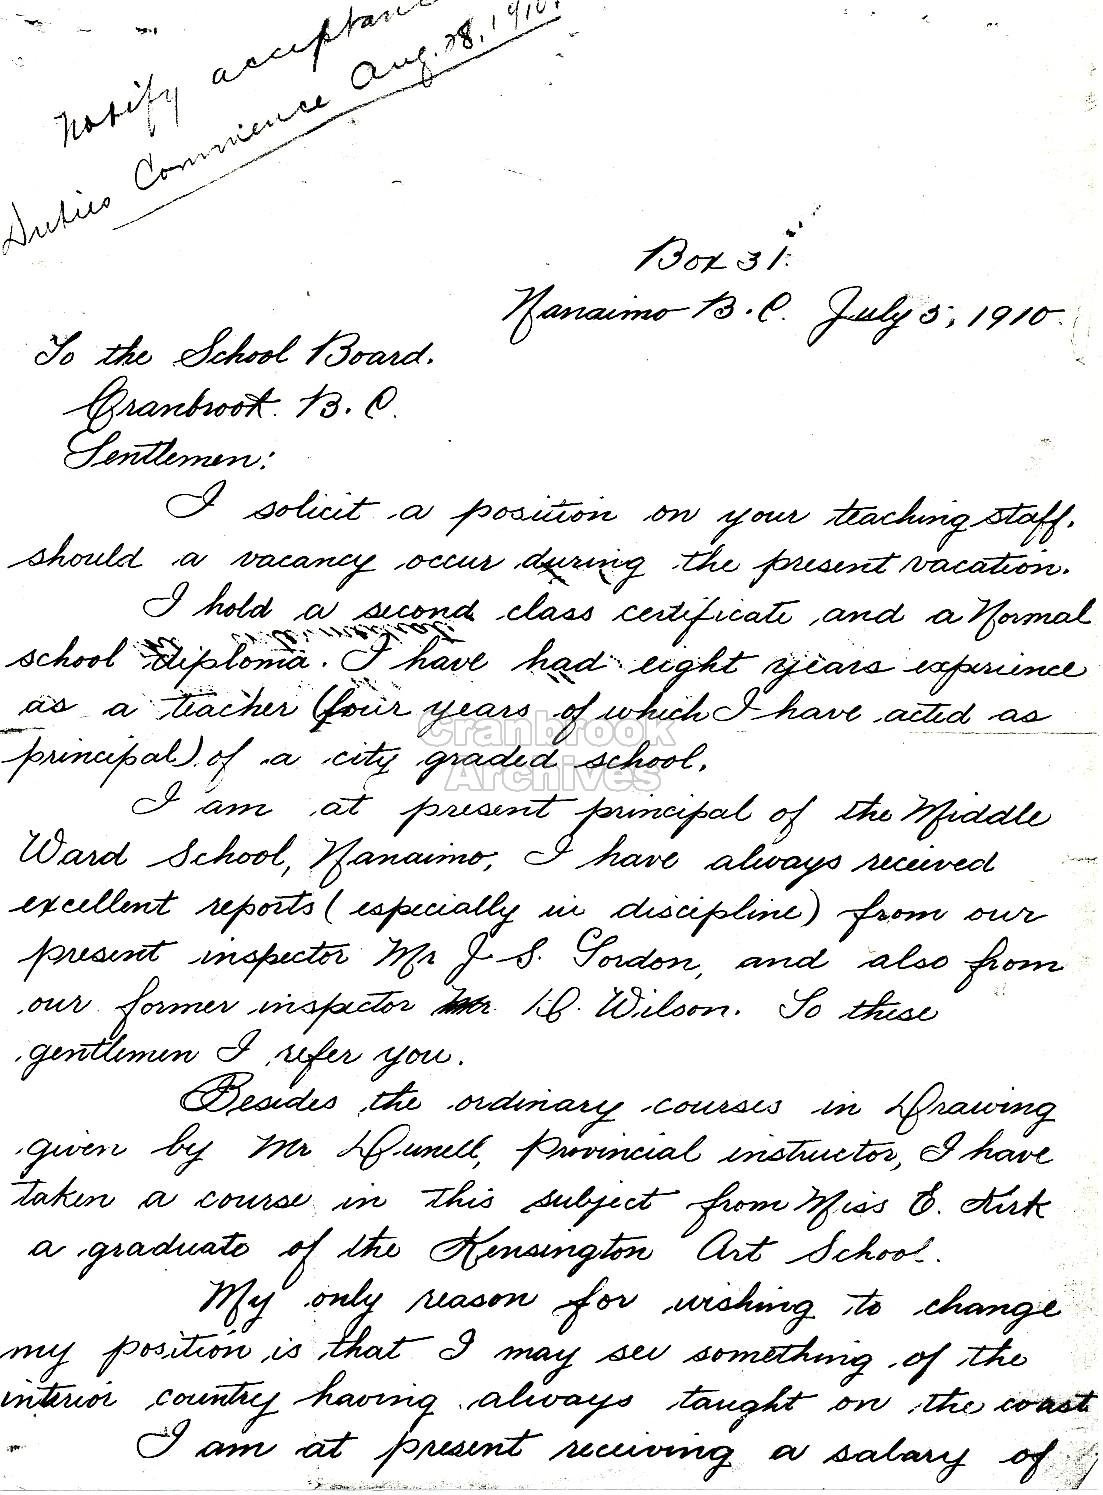 Notify acceptance
Duties Commence Aug. 28, 1910.
Box 31.
Nanaimo B.C. July 5, 1910.
To the School Board.
Cranbrook. B.C.
Gentlemen:
I solicit a position on your teaching staff.
should a vacancy occur during the present vacation.
I hold a second class certificate and a Normal
school diploma. I have had eight years experience
as a teacher (four years of which I have acted as
principal) of a city graded school.
Cranbrook
Archives
I am at present principal of the Middle
Ward School, Nanaimo, I have always received
excellent reports (especially in discipline) from our
present inspector Mr J. S. Gordon, and also from
our former inspector Mr D. Wilson. To these
gentlemen I refer you.
Besides the ordinary courses in Drawing
given by Mr Dunell, Provincial instructor, I have
taken a course in this subject from Miss E. Kirk
a graduate of the Kensington Art School.
My only reason for wishing to change
my position is that I may see something of the
interior country having always taught on the coast
I am at present receiving a salary of